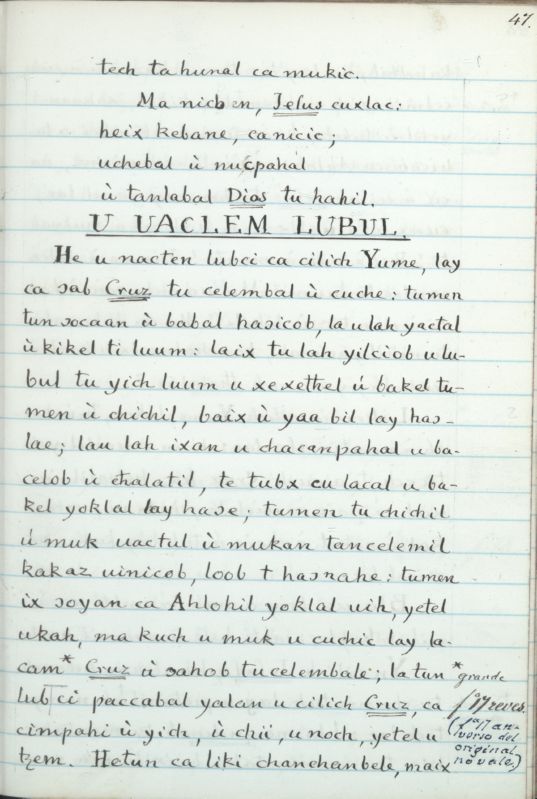 47.
tech ta hunal ca mukic.
Ma nicben, Jesus cuxlac:
heix kebane, ca nicic;
uchebal ù nucpahal
ù tanlabal Dios tu hahil.
U UACLEM LUBUL.
He u nacten lubci ca cilich Yume, lay
ca ɔab Cruz tu celembal ù cuche: tumen
tun ɔocaan ù babal haɔicob, la u lah yactal
ù kikel ti luum: laix tu lah yilciob u lu-
bul tu yich luum u xexethel ú bakel tu-
men ù chichil, baix ù yaabil lay haɔ-
lae; lau lah ixan u chacanpahal u ba-
celob ù chalatil, te tubx cu lacal u ba-
kel yoklal lay haɔe; tumen tu chichil
ú muk uactul ù mukan tancelemil
kakaz uinicob, loob † haɔnahe: tumen
ix ɔoyan ca Ahlohil yoklal uih, yetel
ukah, ma kuch u muk u cuchic lay la-
cam* Cruz ù ɔahob tu celembale; la tun
*grande
lubci paccabal yalan u cilich Cruz, ca
cimpahi ù yich, ù chii, u noch, yetel u
tzem. Hetun ca liki chanchanbele, maix
fª 17 reves.
(fª 17 an-
verso del
original
no vale.)